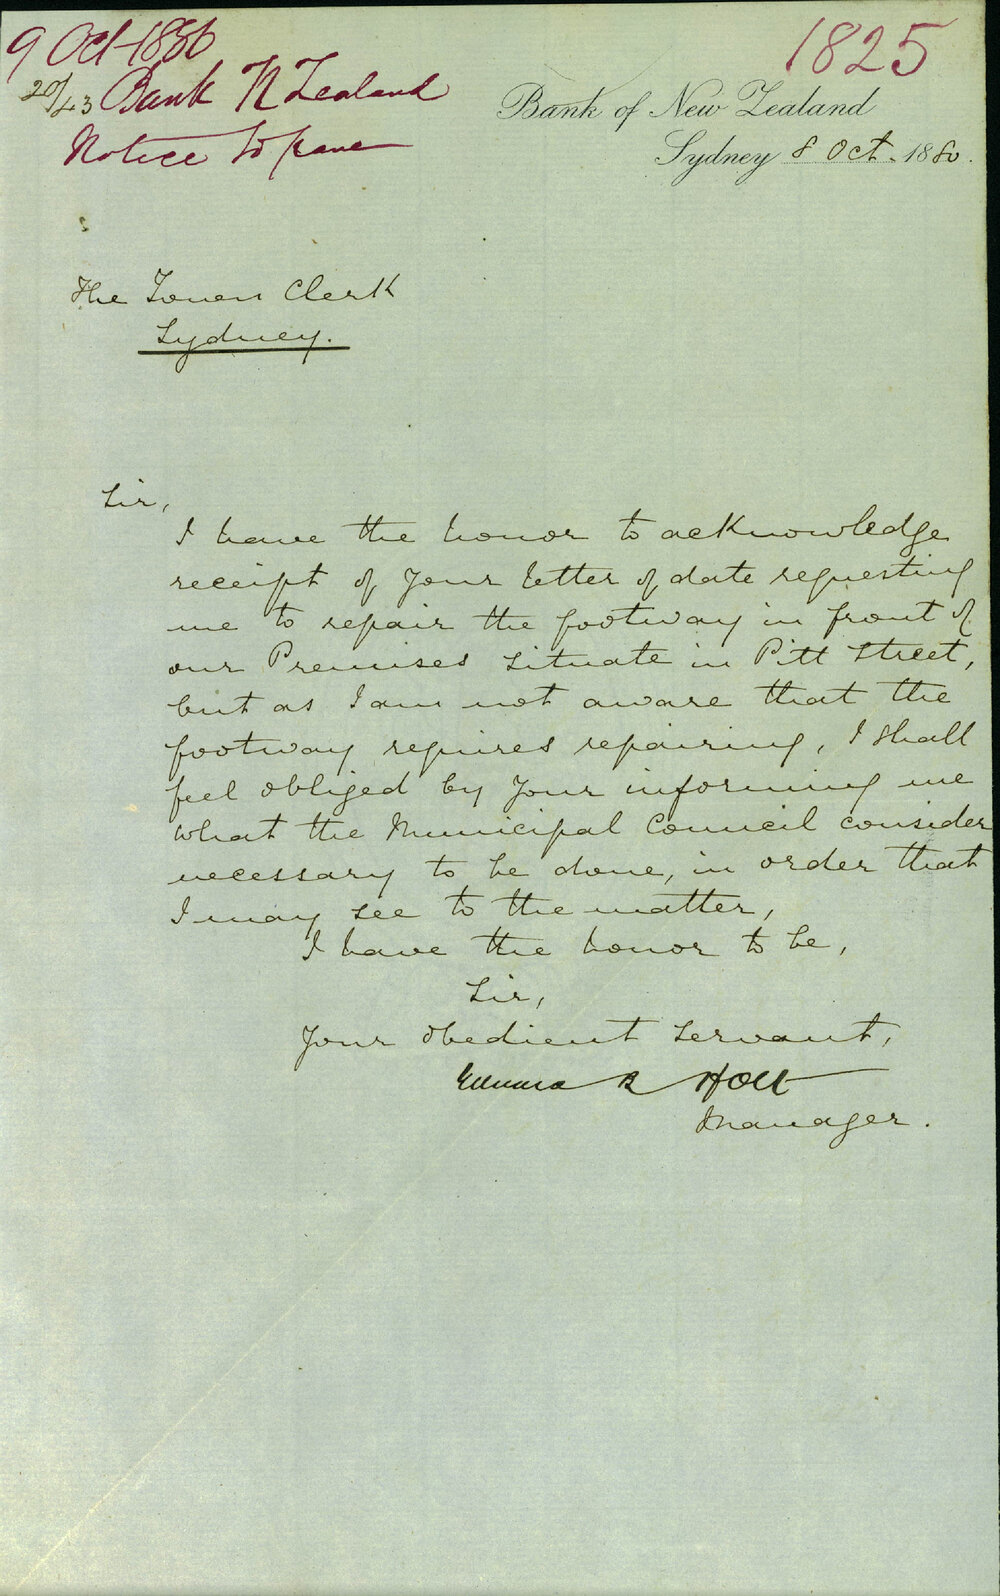 9 Oct 1880
1825
20/43 Bank N Zealand
Notice to pave
Bank of New Zealand
Sydney 8 Oct. 1880.
The Town Clerk
Sydney.
Sir,
I have the honor to acknowledge
receipt of your letter of date requesting
me to repair the footway in front of
our Premises situate in Pitt Street,
but as I am not aware that the
footway requires repairing, I shall
feel obliged by your informing me
what the Municipal Council consider
necessary to be done, in order that
I may see to the matter,
I have the honor to be,
Sir,
Your obedient servant,
Edward R Holt
Manager.